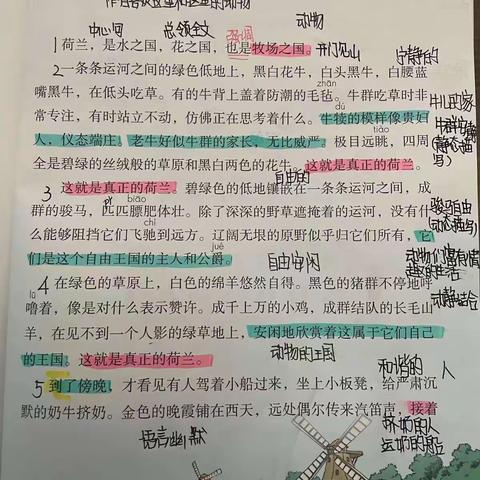 动物
中心句 总领全文 强调
1荷兰，是水之国，花之国，也是牧场之国。开门见山 宁静的
2一条条运河之间的绿色低地上，黑白花牛，白头黑牛，白腰蓝
zhān
嘴黑牛，在低头吃草。有的牛背上盖着防潮的毛毡。牛群吃草时非
dú
常专注，有时站立不动，仿佛正在思考着什么。牛犊的模样像贵妇
人，仪态端庄。老牛好似牛群的家长，无比威严。极目远眺，四周
tiào
全是碧绿的丝绒般的草原和黑白两色的花牛。这就是真正的荷兰。
自由的
3 这就是真正的荷兰。碧绿色的低地镶嵌在一条条运河之间，成
pǐ biāo
群的骏马，匹匹膘肥体壮。除了深深的野草遮掩着的运河，没有什
chí
么能够阻挡它们飞驰到远方。辽阔无垠的原野似乎归它们所有，它
jué
们是这个自由王国的主人和公爵。 自由安闲
4在绿色的草原上，白色的绵羊悠然自得。黑色的猪群不停地呼
lū
噜着，像是对什么表示赞许。成千上万的小鸡，成群结队的长毛山
羊，在见不到一个人影的绿草地上，安闲地欣赏着这属于它们自己
的王国。这就是真正的荷兰。 动物的王国 和谐的 人
5 到了傍晚，才看见有人驾着小船过来，坐上小板凳，给严肃沉
默的奶牛挤奶。金色的晚霞铺在西天，远处偶尔传来汽笛声，接着
语言幽默
挤奶的人
运奶的船
动静结合